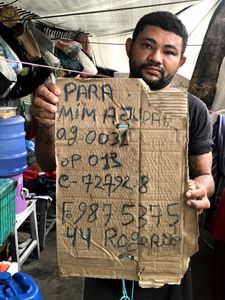 PARA
MIM AJUDAR
ag 0031
oP 013
C-72792-8
F987 5375
44 Rogerio